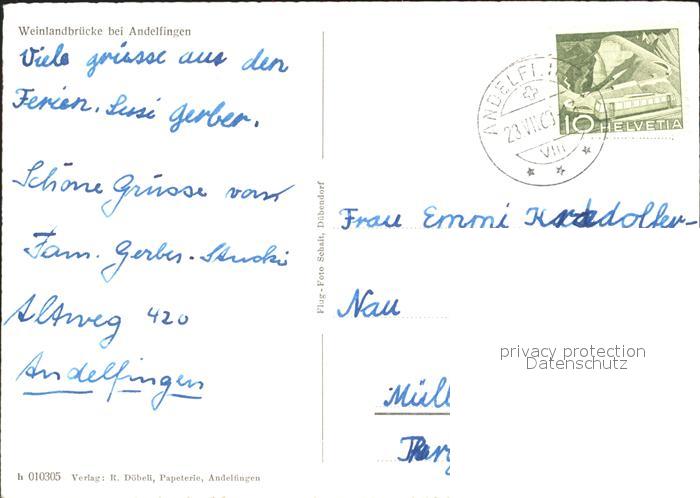 Weinlandbrücke bei Andelfingen
Viele grüsse aus den
Ferien. Susi Gerber.
Schöne Grüsse von
Fam. Gerber-Stucki
Altweg 420
Andelfingen
h 010305 Verlag: R. Döbeli, Papeterie, Andelfingen
Flug-Foto Schalt, Dübendorf
VIII
10 HELVETIA
Frau Emmi
Nau
privacy protection
Datenschutz
Müll